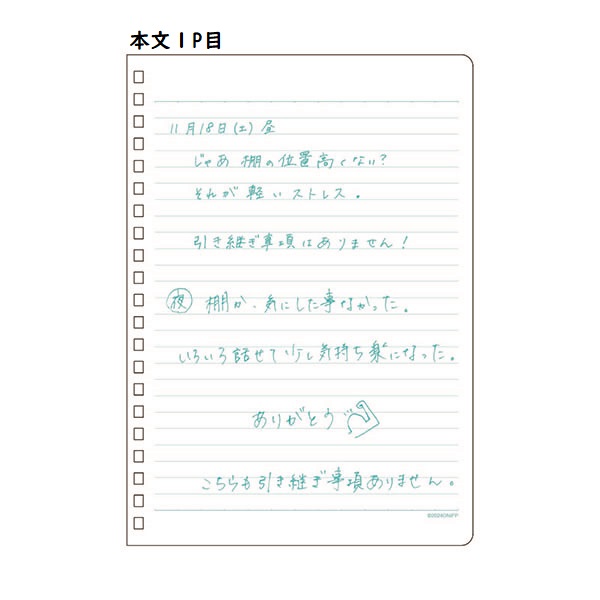 本文1P目
11月18日(土)昼
じゃあ 棚の位置高くない?
それが 軽い ストレス。
引き継ぎ事項はありません!
夜 棚か、気にした事なかった。
いろいろ話せて少し気持ち楽になった。
ありがとう
こちらも引き継ぎ事項ありません。